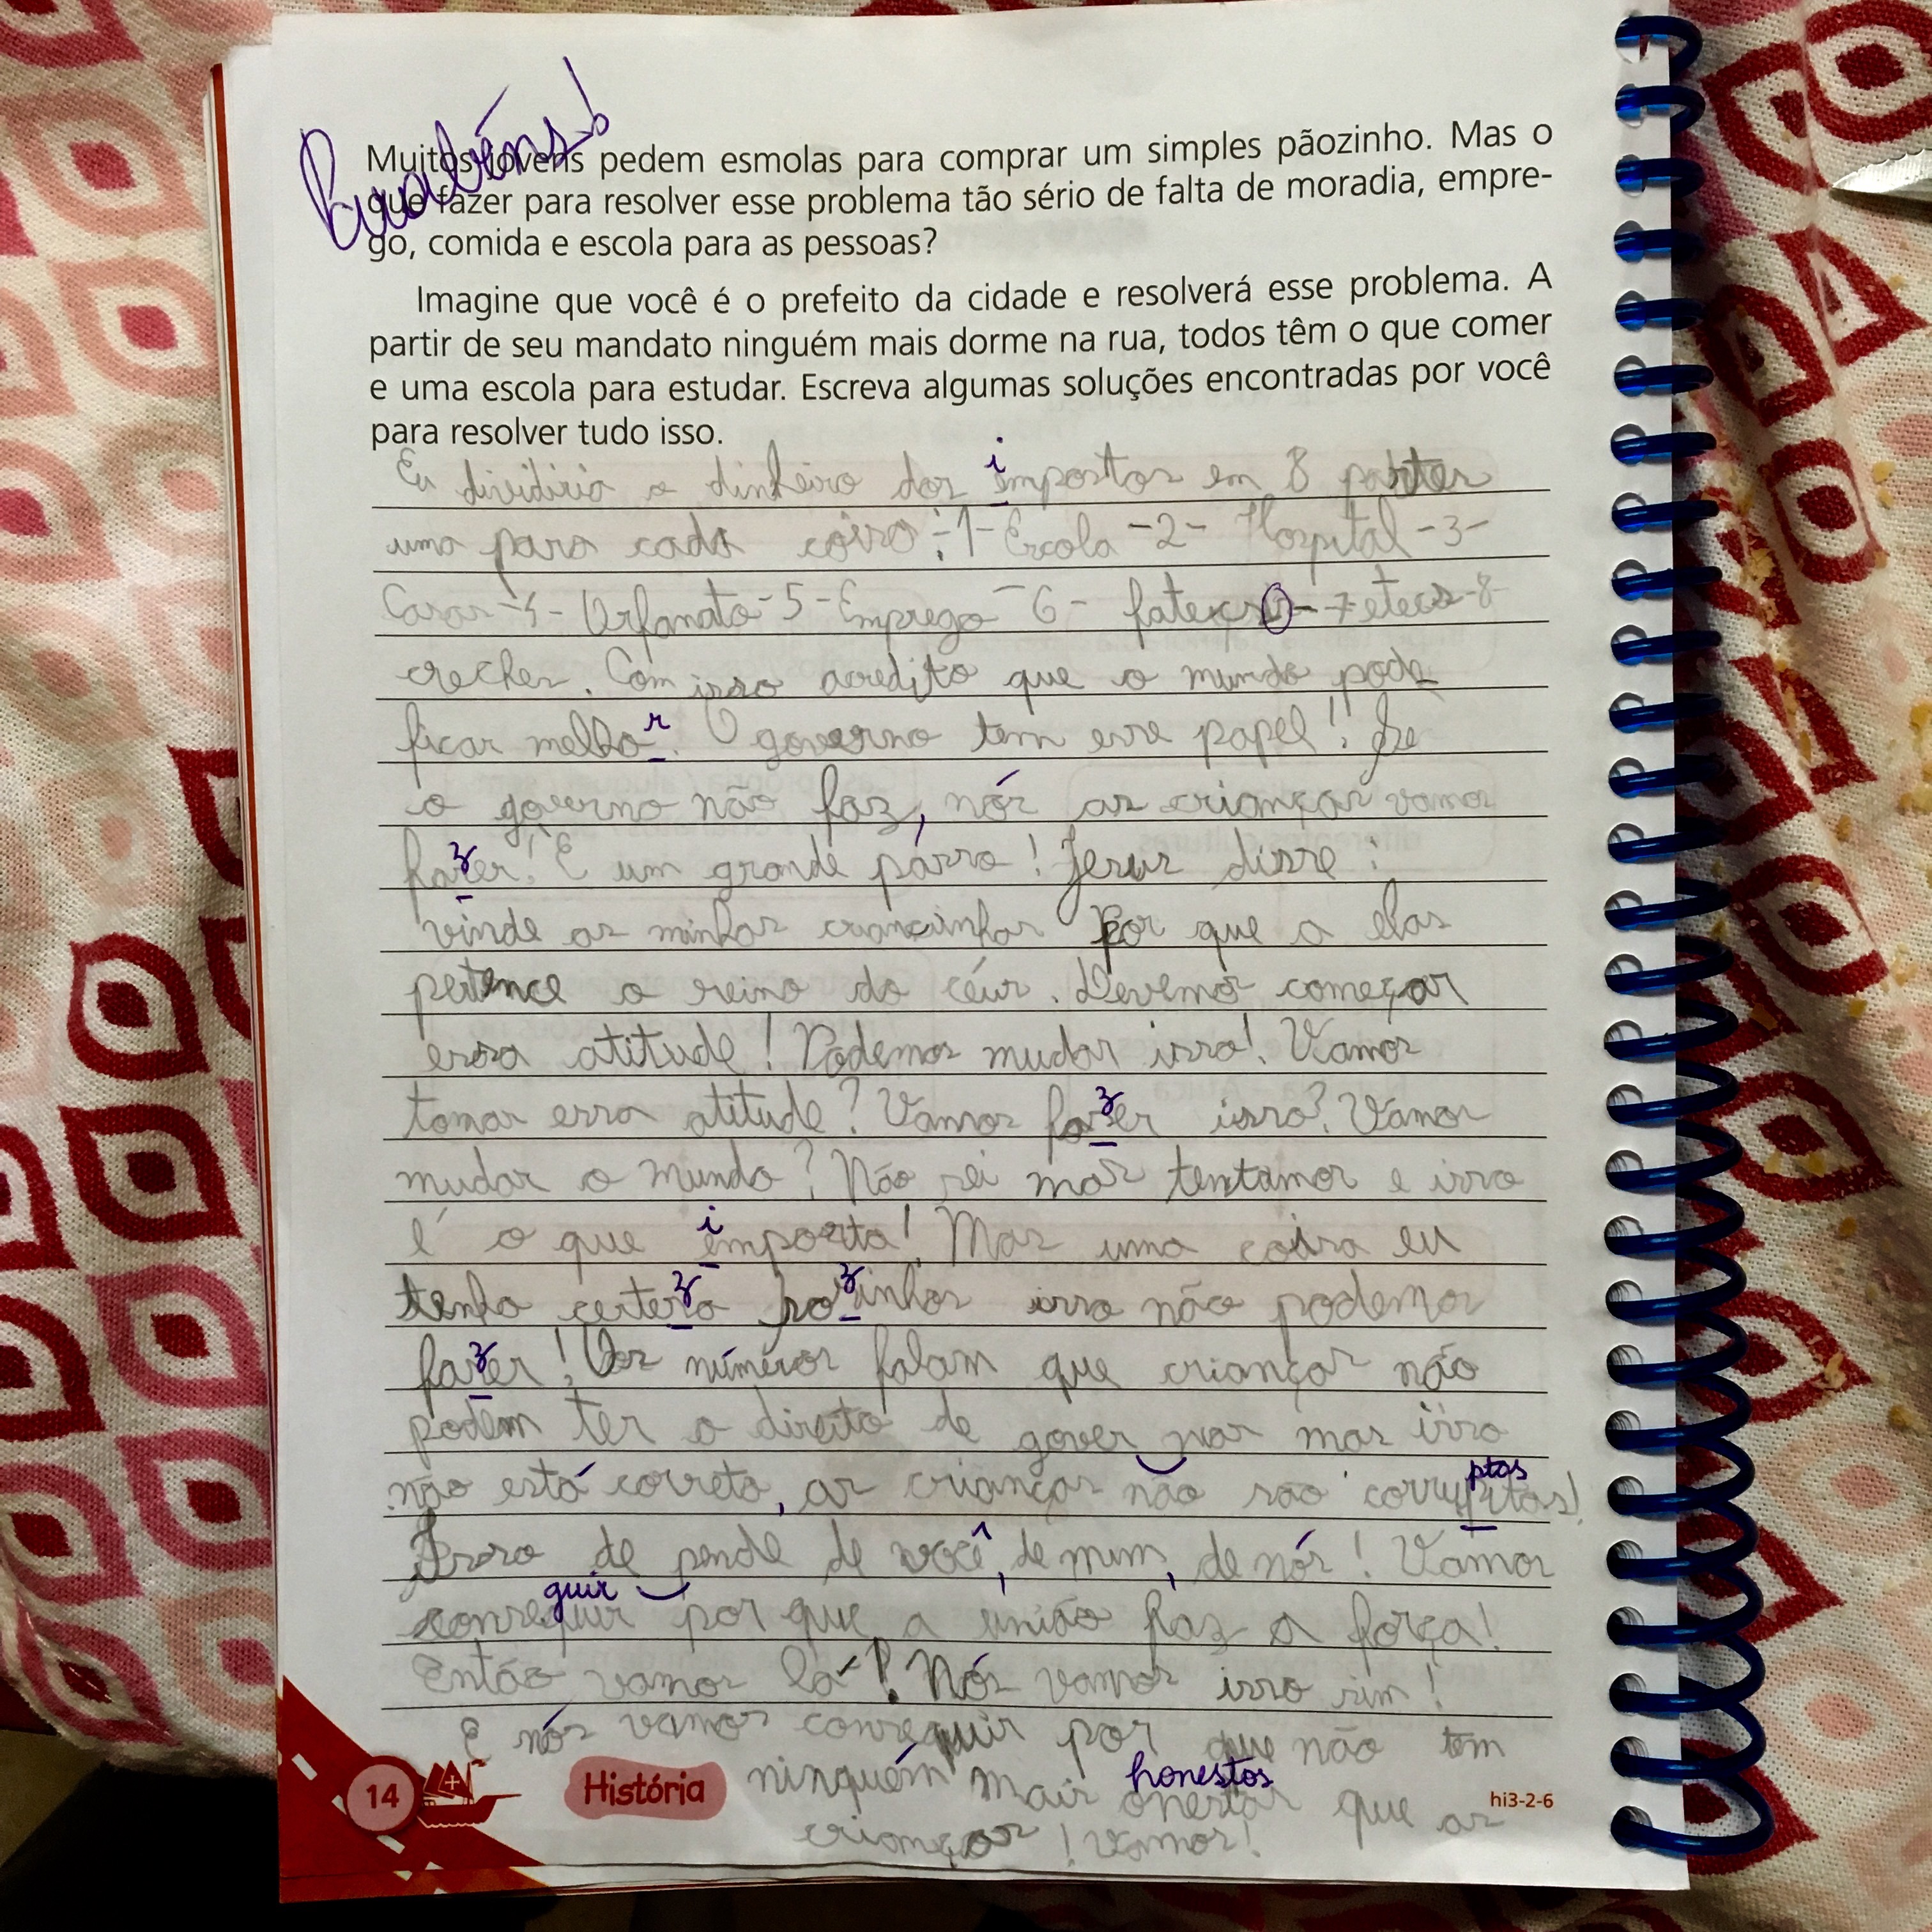 Parabéns!
Muitos jovens pedem esmolas para comprar um simples pãozinho. Mas o
que fazer para resolver esse problema tão sério de falta de moradia, empre-
go, comida e escola para as pessoas?
Imagine que você é o prefeito da cidade e resolverá esse problema. A
partir de seu mandato ninguém mais dorme na rua, todos têm o que comer
e uma escola para estudar. Escreva algumas soluções encontradas por você
para resolver tudo isso.
i
Eu dividiria o dinheiro dos impostos em 8 partes
uma para cada coisa: -1- Escola -2- Hospital -3-
Casas -4- Orfanato -5- Emprego -6- fatecs - 7 etecs -8-
creches. Com isso acredito que o mundo pode
r
ficar melhor. O governo tem esse papel!! Se
o governo não faz, nós as crianças vamos
z
fazer! É um grande passo! Jesus disse:
vinde as minhas criancinhas Por que a elas
pertence o reino do céus. Devemos começar
essa atitude! Podemos mudar isso! Vamos
z
tomar essa atitude? Vamos fazer isso? Vamos
mudar o mundo? Não sei mas tentamos e isso
i
é o que importa! Mas uma coisa eu
z z
tenho certeza sozinhos isso não podemos
z
fazer! Os números falam que crianças não
podem ter o direito de gover nar mas isso
ptos
não está correto, as crianças não são corruptos!
Isso de pende de você, de mim, de nós! Vamos
guir
conseguir por que a união faz a força!
Então vamos lá! Nós vamos isso sim!
E nós vamos conseguir por que não tem
honestos
ninguém mais onestas que as
crianças! Vamos!
14
História
hi3-2-6